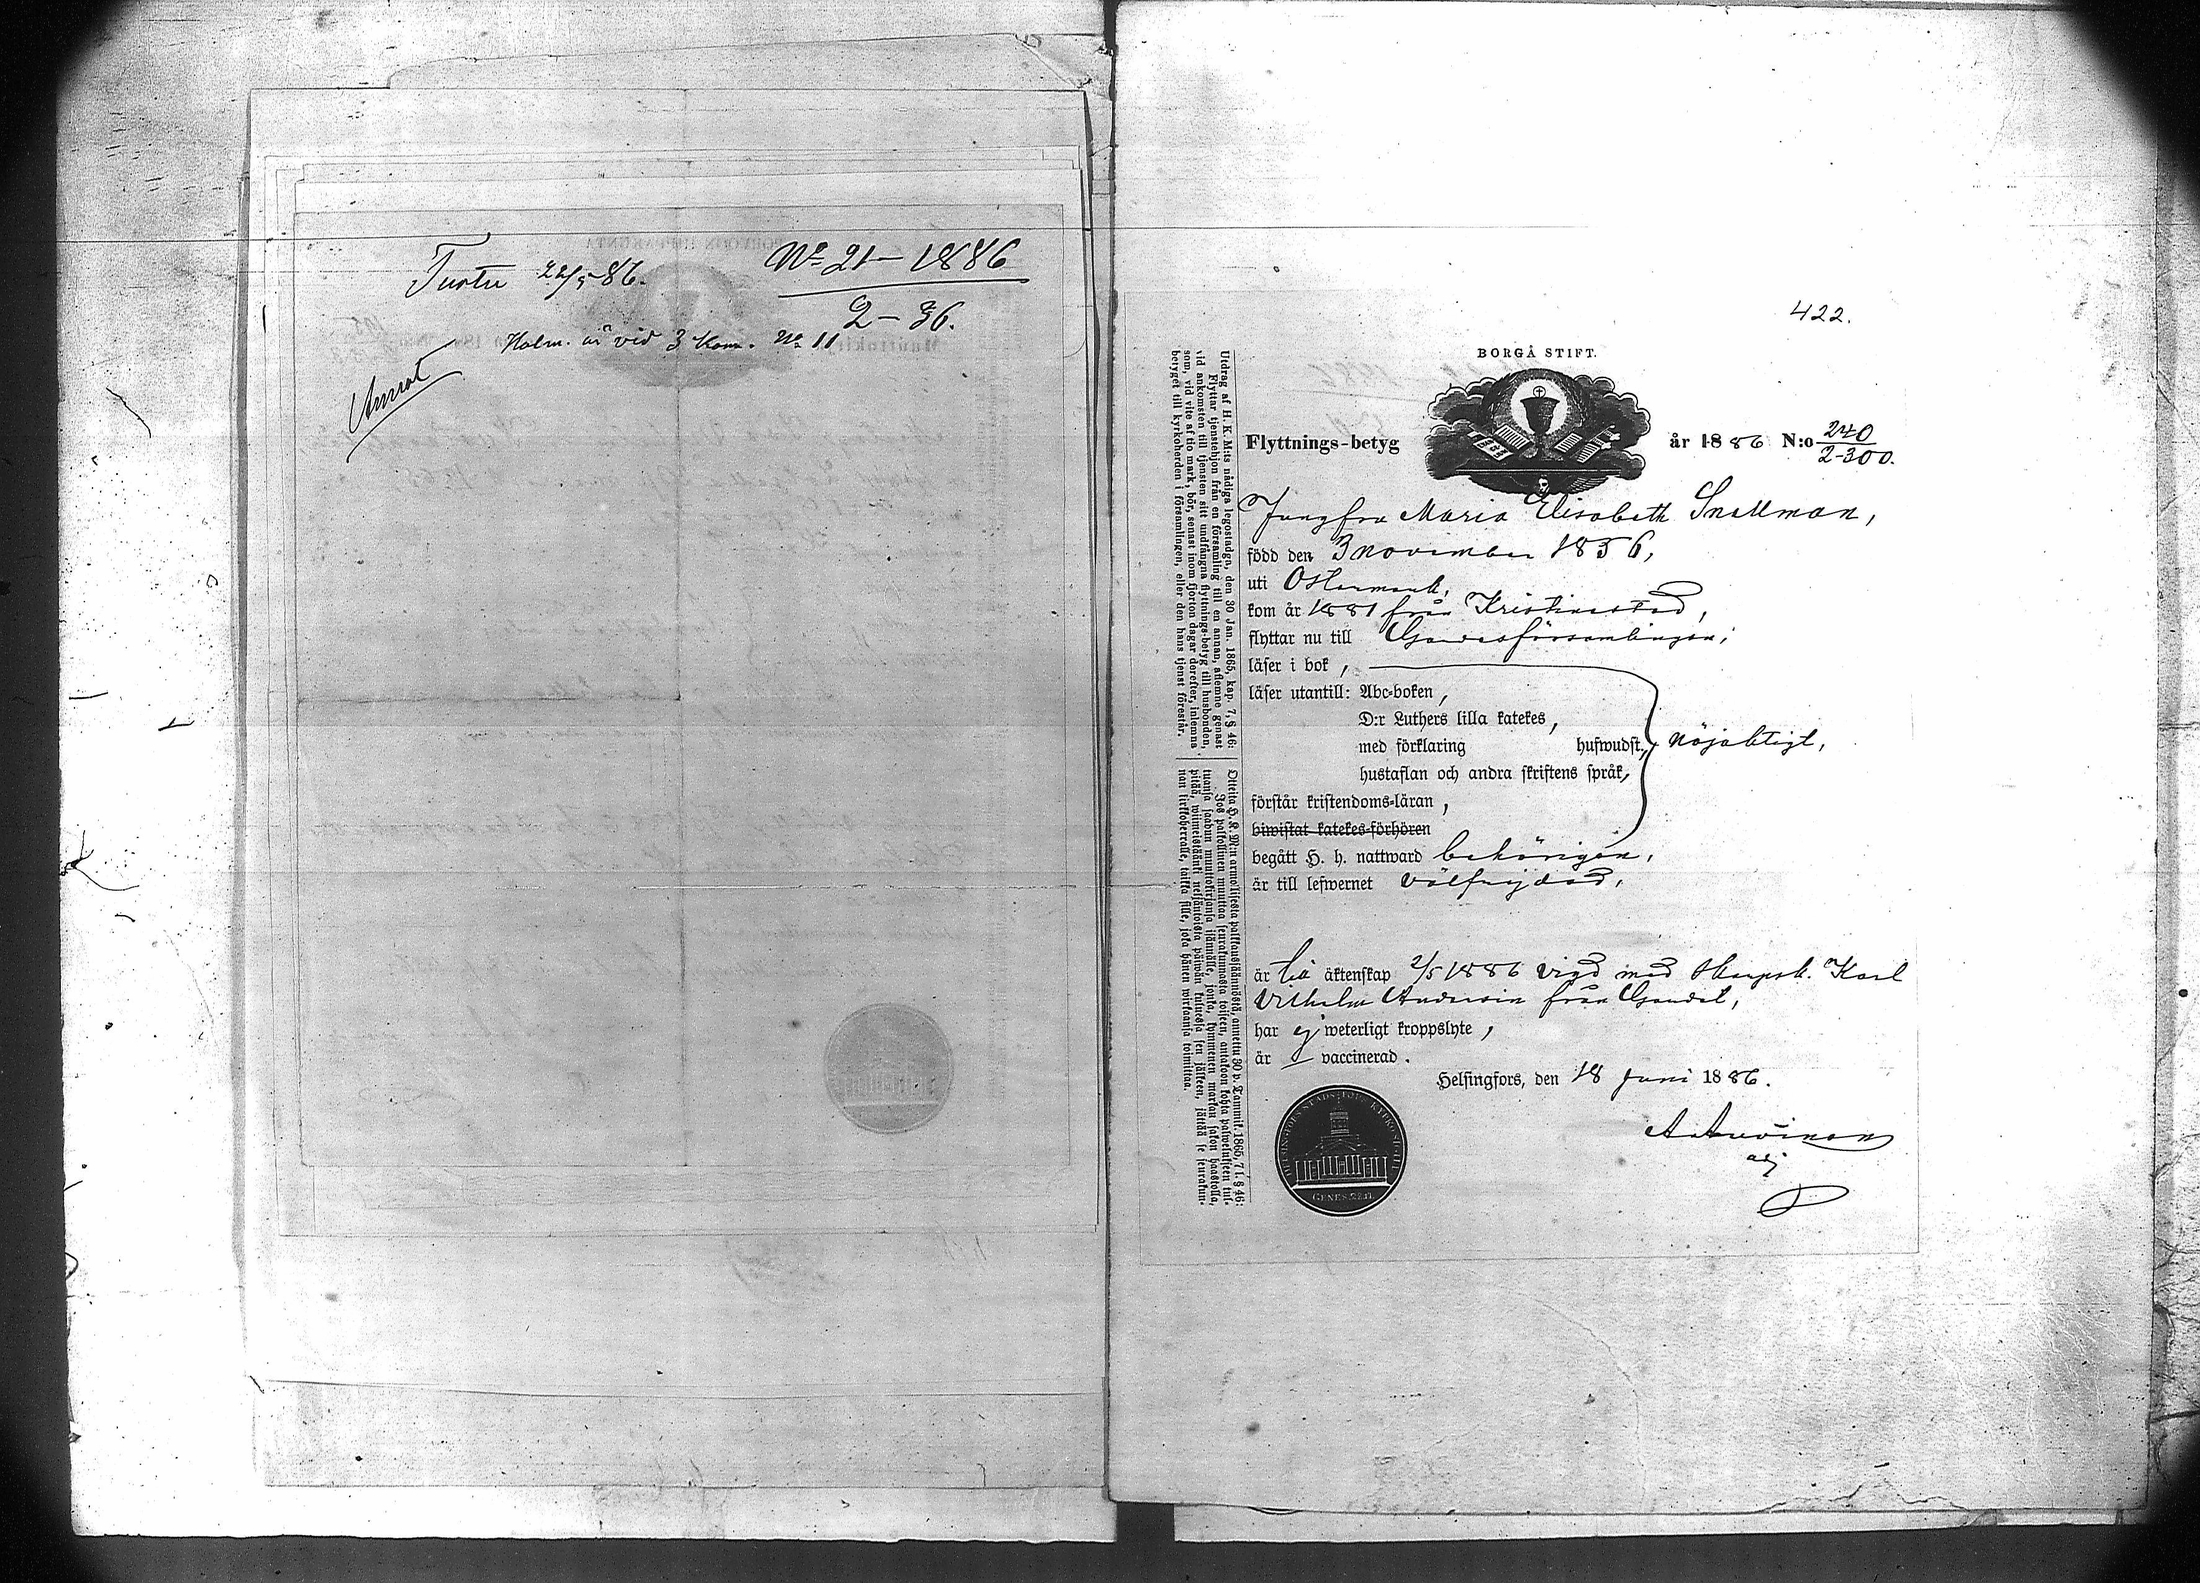 Turtu 22/5 86.
No 21 – 1886
2 – 36.
Holm. är vid 3 Kom. No 11
422.
BORGÅ STIFT.
Flyttnings-betyg år 1886 N:o 240
2-300.
Jungfru Maria Elisabeth Snellman,
född den 3 november 1856,
uti Östermark,
kom år 1881 från Kristinestad,
flyttar nu till Gardesförsamlingen;
läser i bok,
läser utantill: Abc-boken,
D:r Luthers lilla katekes,
med förklaring hufwudst., nöjaktigt,
hustaflan och andra skriftens språk,
förstår kristendoms-läran,
biwistat katekes-förhören
begått H. h. nattward behörigen,
är till lefwernet välfrejdad,
är till äktenskap 2/5 1886 vigd med Karl
Vilhelm Andersin från Gardet,
har ej weterligt kroppslyte,
är vaccinerad.
Helsingfors, den 18 juni 1886.
adj
Utdrag af H. K. M:ts nådiga legostadga, den 30 Jan. 1865, kap. 7, § 46:
Flyttar tjenstehjon från en församling till en annan, aflemne genast
vid ankomsten till tjensten sitt undfångna flyttnings-betyg till husbonden,
som, vid vite af tio mark, bör, senast inom fjorton dagar derefter, inlemna
betyget till kyrkoherden i församlingen, eller den hans tjenst förestår.
Otteita H. K. M:n armollisesta palkkaussäännöstä, annettu 30 p. Tammik. 1865, 7 l. § 46:
Jos palkollinen muuttaa seurakunnasta toiseen, antakoon kohta palwelukseen tul-
tuansa saadun muuttokirjansa isännälle, jonka, kymmenen markan sakon haastolla,
pitää, wiimeistäänki neljäntoista päiwän kuluessa sen jälkeen, jättää se seurakun-
nan kirkkoherralle, taikka sille, joka hänen wirkaansa toimittaa.
GENES. 28:17.